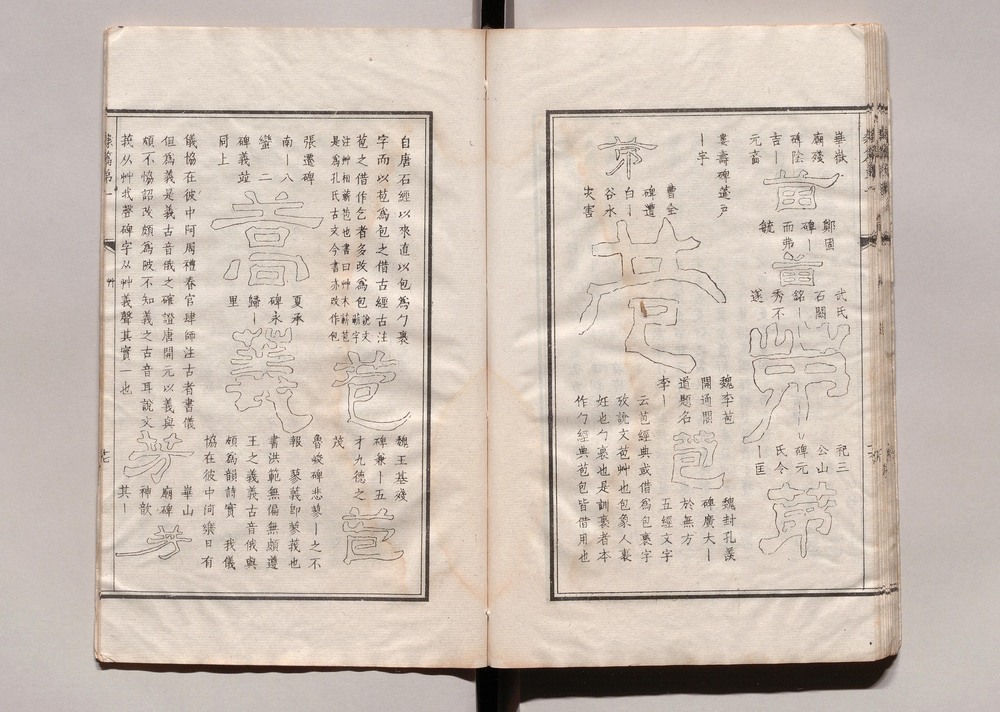 華嶽
廟殘
碑陰
吉｜
元畜
苗
鄭固
碑｜
而弗
毓
苗
武氏
石闕
銘｜
秀不
遂
祀三
公山
碑元
氏令
｜匡
茀
婁壽碑薳戶
｜字
曹全
碑遭
白｜
谷水
灾害
苞
魏李苞
開通閣
道題名
李｜
苞
魏封孔羨
碑廣大｜
於無方
五經文字
云苞經典或借為包裹字
攷說文苞艸也包象人裹
妊也勹裹也是訓裹者本
作勹經典苞包皆借用也
自唐石經以來直以包為勹裹
字而以苞為包之借古經古注
苞之借作包者多改為包說文蘄字
注艸相蘄苞也書曰艸木蘄苞
是為孔氏古文今書亦改作包
苞
魏王基殘
碑兼｜五
才九德之
茂
苞
張遷碑
南｜八
蠻 二
碑義竝
同上
蒿
夏承
碑永
歸｜
里
魯峻碑悲蓼｜之不
報 蓼義即蓼莪也
書洪範無偏無頗遵
王之義義古音俄與
頗為韻詩實 我儀
協在彼中河樂且有
儀協在彼中阿周禮春官肆師注古者書儀
但為義是義古音俄之確證唐開元以義與
頗不恊詔改頗為陂不知義之古音耳說文
莪从艸我聲碑字从艸義聲其實一也
芳
華山
廟碑
神歆
其｜
芳